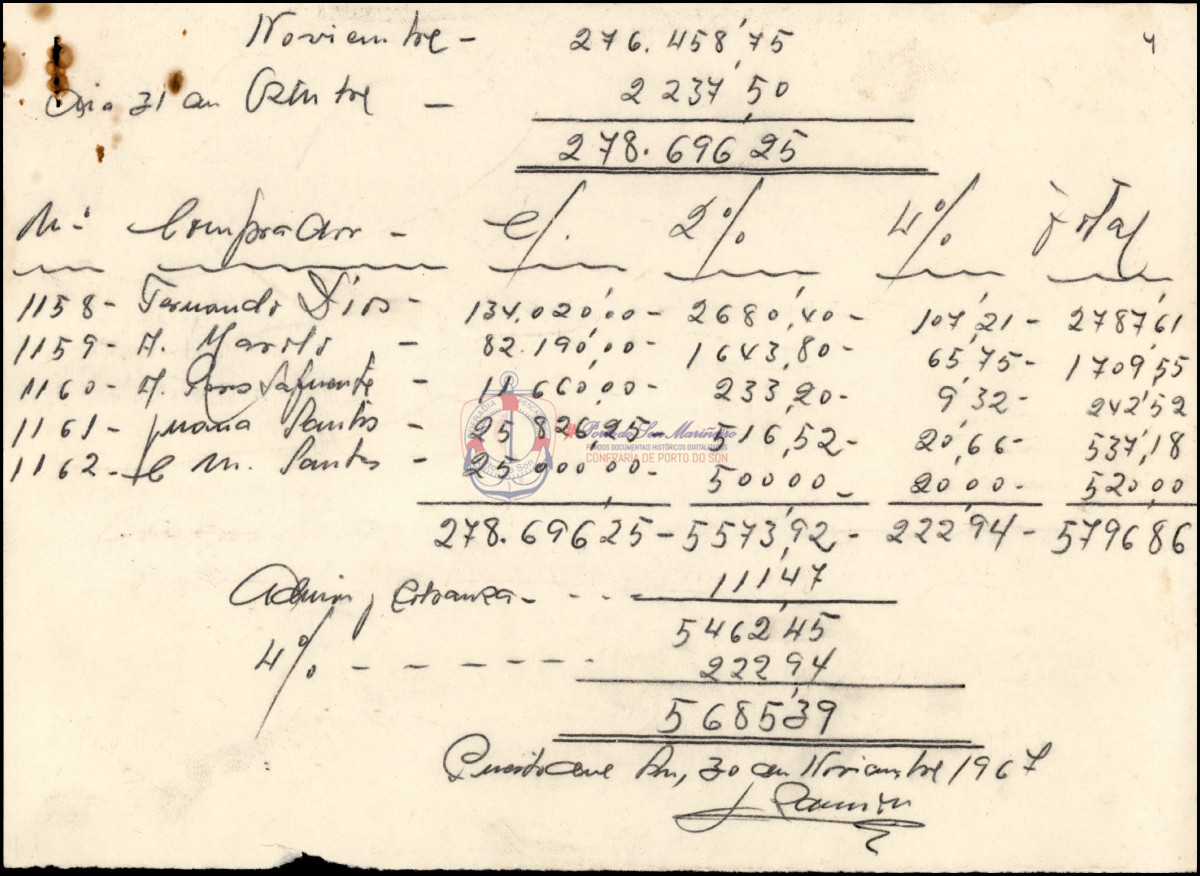 4
Noviembre - 276.458,75
Dia 31 de Octubre - 2 237,50
278.696 25
Nº Comprador - C/. 2% 4% Total
1158 - Fernando Dios - 134.020,00 - 2680,40 - 107,21 - 2787,61
1159 - M. - 82.190,00 - 1643,80 - 65,75 - 1709,55
1160 - M. Pons Lafuente - 11 660,00 - 233,20 - 9,32 - 242,52
1161 - Juana Santos - 25 826,25 - 516,52 - 20,66 - 537,18
1162 - C M. Santos - 25 000,00 - 500,00 - 20 00 - 520,00
278.696 25 - 5573,92 - 222,94 - 5796 86
Admon y cobranza - - - - 111,47
5462,45
4% - - - - - - - 222 94
5685,39
Puerto del Son, 30 de Noviembre 1967
Porto do Son Mariñeiro
FONDOS DOCUMENTAIS HISTÓRICOS DIGITALIZADOS
CONFRARÍA DE PORTO DO SON